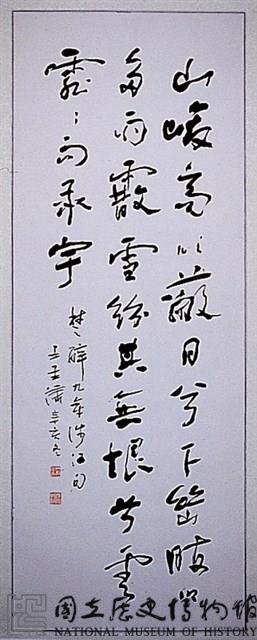 山峻高以蔽日兮下幽晦以
多雨霰雪紛其無垠兮雲
霏〻而承宇
楚辭九章涉江句
辛亥冬
國立歷史博物館
NATIONAL MUSEUM OF HISTORY